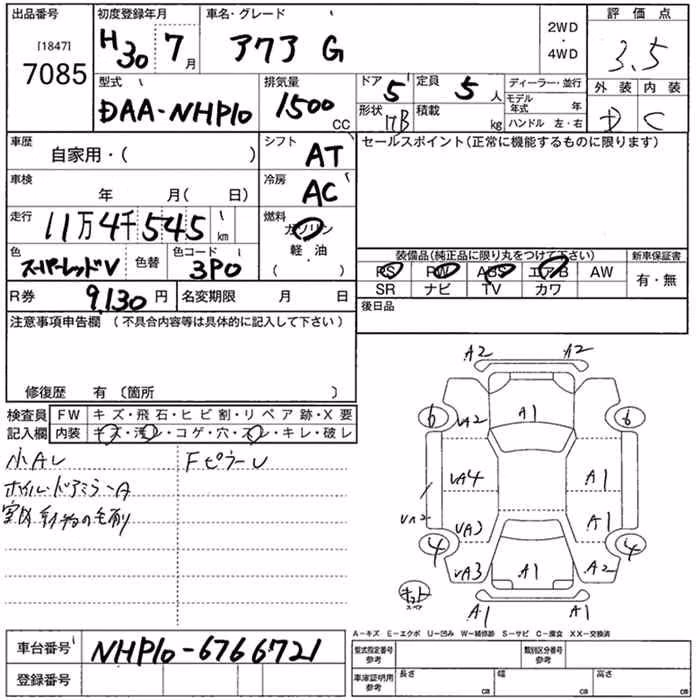 出品番号 初度登録年月 車名・グレード 評価点
[1847]
7085
H30 7月 アクア G 2WD・4WD 3.5
型式 排気量 ドア 定員 ディーラー・並行 外装 内装
DAA-NHP10 1500CC 5 5人 モデル年式 年 D C
形状 HB 積載 kg ハンドル 左・右
車歴 自家用・( ) シフト AT セールスポイント(正常に機能するものに限ります)
車検 年 月( 日) 冷房 AC
走行 11万4千545km 燃料 ガソリン
軽・油
( )
色 スーパーレッドV 色替 色コード 3P0
装備品(純正品に限り丸をつけて下さい) 新車保証書
PS PW ABS エアB AW 有・無
SR ナビ TV カワ
R券 9,130円 名変期限 月 日 後日品
注意事項申告欄 (不具合内容等は具体的に記入して下さい)
修復歴 有 〔箇所 〕
検査員 FW キズ・飛石・ヒビ割・リペア跡・X要
記入欄 内装 キズ・汚レ・コゲ・穴・スレ・キレ・破レ
小AU FピラーU
ホイル・ドアミラーA
A2 A2
6 A2 A1 6
UA4 A1
UA3 A1
4 4
UA3 A1 A2
A1 A1
A-キズ E-エクボ U-凹み W-補修跡 S-サビ C-腐食 XX-交換済
車台番号 NHP10-6766721
登録番号
型式指定番号 参考 類別区分番号 参考
車庫証明用 参考 長さ cm 幅 cm 高さ cm